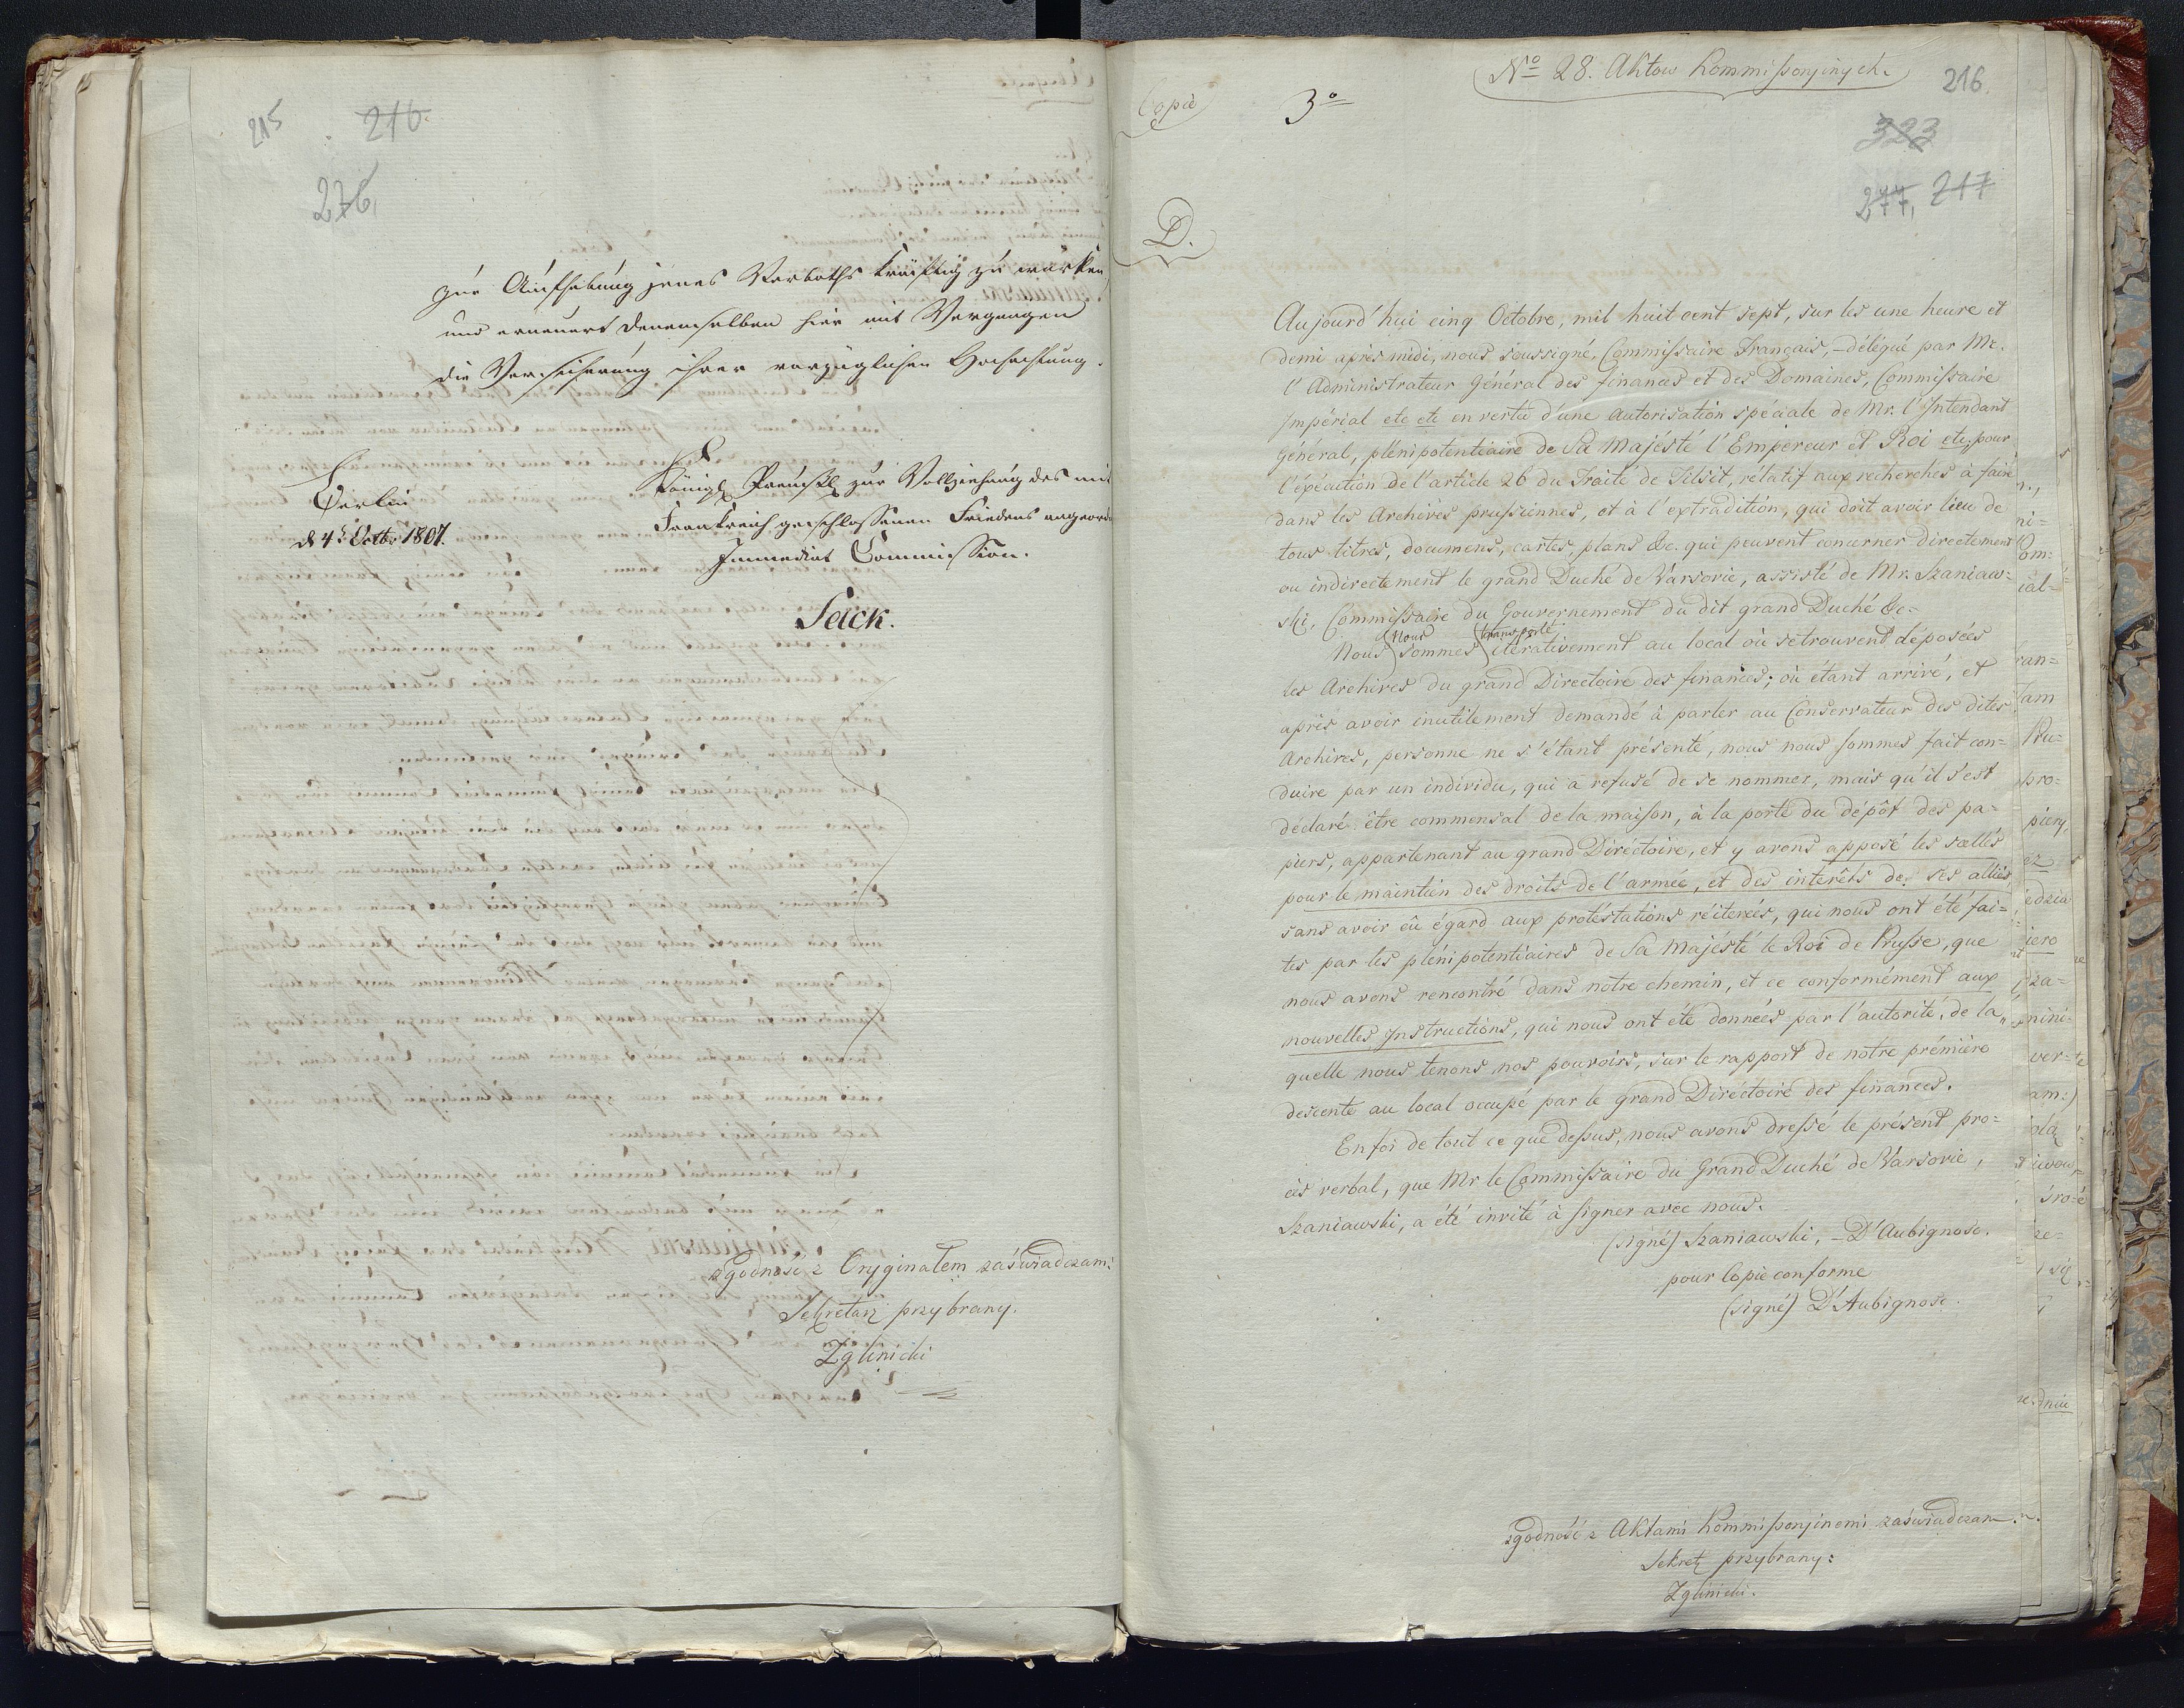 215 216.
276,
zur Aufhebung jenes Verboths kräftig zu wirken
und erneuert denenselben hier mit Vergnügen
die Versicherung ihrer vorzüglichen Hochachtung.
Berlin
d 4t Octbr 1807.
Königl Preußl zur Vollziehung des mit
Frankreich geschlossenen Friedens angeord
Immediat Commission.
Sack.
zgodność z Oryginałem zaświadczam:
Sekretarz przybrany.
Zglinicki
No 28. Aktow Kommissyinych.
216.
Copie
3o
323
277, 217
D.
Aujourd'hui cinq Octobre, mil huit cent sept, sur les une heure et
demi après midi, nous soussigné, Commissaire Français, – délégué par Mr.
l'Administrateur Général des finances et des Domaines, Commissaire
Impérial etc etc en vertu d'une autorisation spéciale de Mr. l'Intendant
Général, plénipotentiaire de Sa Majésté l'Empereur et Roi etc, pour
l'éxécution de l'article 26 du Traité de Tilsit, rélatif aux recherches à faire
dans les Archives prussiennes, et à l'extradition, qui doit avoir lieu de
tous titres, documens, cartes, plans &c. qui peuvent concerner directement
ou indirectement le grand Duché de Varsovie, assisté de Mr. Szaniaw=
ski, Commissaire du Gouvernement du dit grand Duché &c=
nous transporté
Nous sommes itérativement au local où se trouvent déposées
les Archives du grand Directoire des finances; où étant arrivé, et
après avoir inutilement demandé à parler au Conservateur des dites
Archives, personne ne s'étant présenté, nous nous sommes fait con=
duire par un individu, qui a refusé de se nommer, mais qu'il s'est
déclaré être commensal de la maison, à la porte du dépôt des pa=
piers, appartenant au grand Diréctoire, et y avons apposé les scellés
pour le maintien des droits de l'armée, et des interêts de ses alliés,
sans avoir eû égard aux protéstations réiterées, qui nous ont été fai=
tes par les plénipotentiaires de Sa Majésté le Roi de Prusse, que
nous avons rencontré dans notre chemin, et ce conformément aux
nouvelles Instructions, qui nous ont été données par l'autorité, de la„
quelle nous tenons nos pouvoirs, sur le rapport de notre prémière
descente au local occupé par le grand Diréctoire des finances.
En foi de tout ce que dessus, nous avons dressé le présent pro=
cès verbal, que Mr le Commissaire du Grand Duché de Varsovie,
Szaniawski, a été invité à signer avec nous.
(signé) Szaniawski, – D'Aubignosc.
pour Copie conforme
(signé) D'Aubignosc.
zgodność z Aktami Kommissyinemi zaświadczam.
Sekretz przybrany:
Zglinicki.